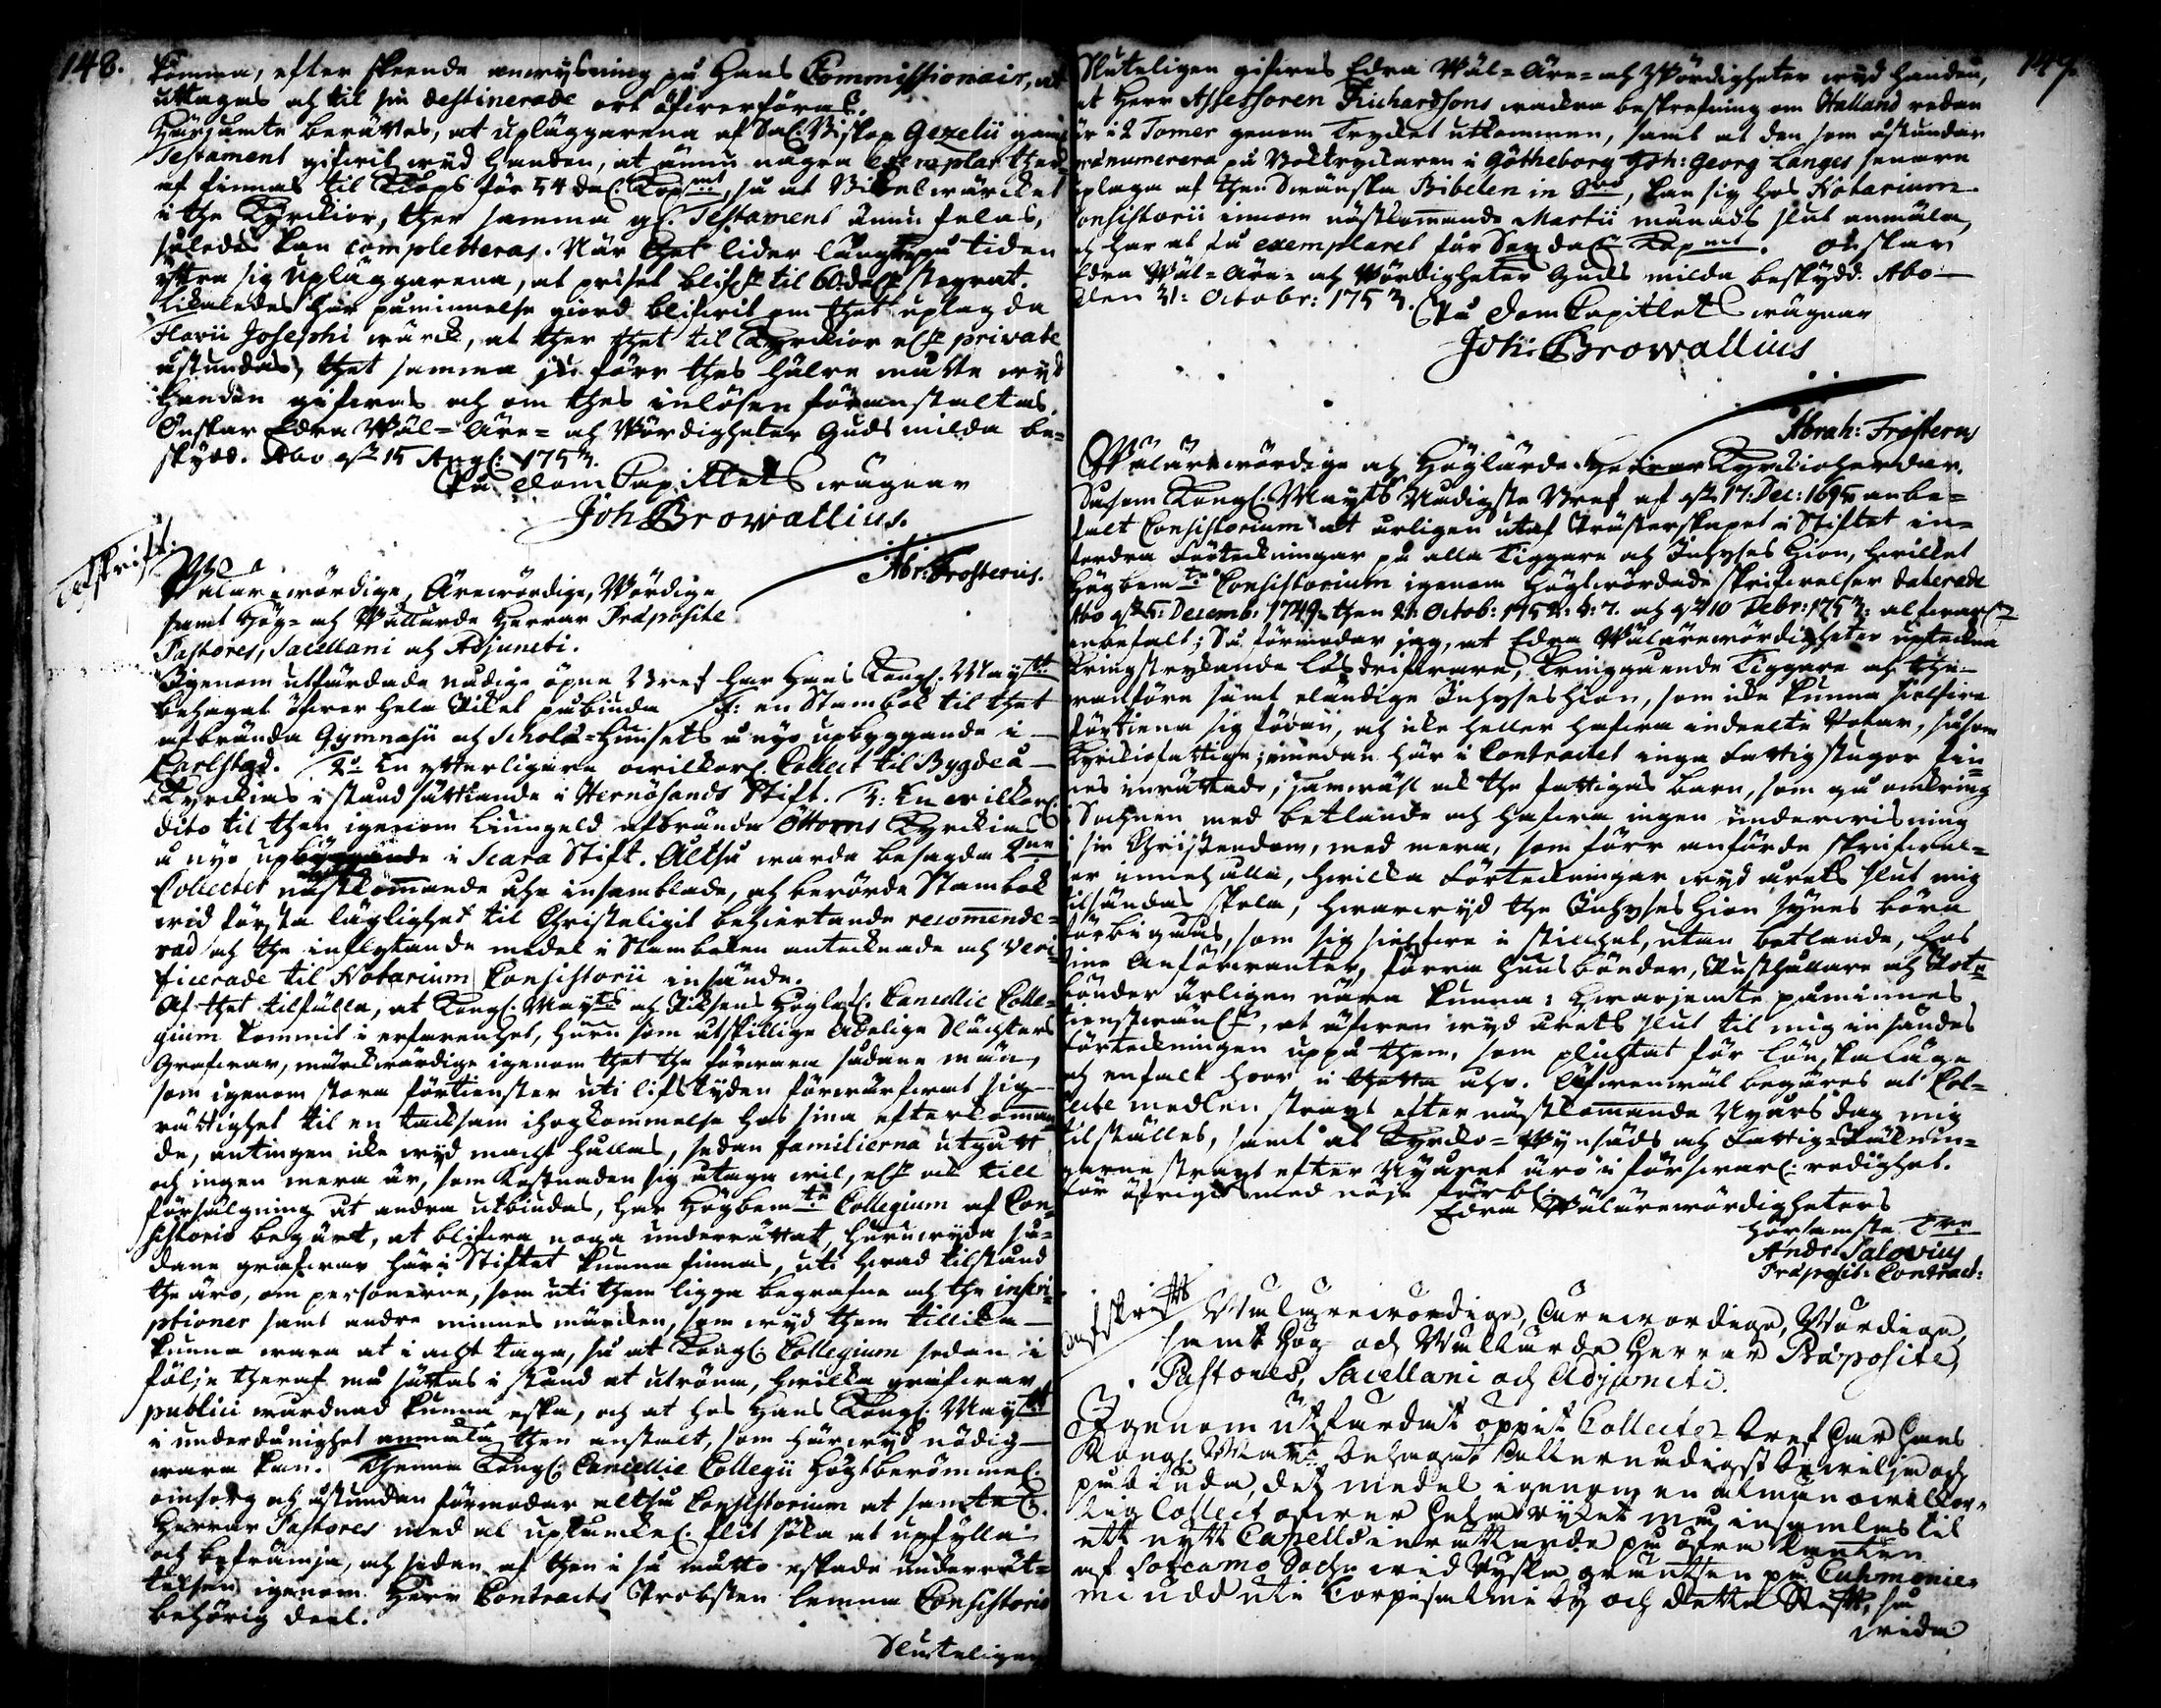 148.
komma, efter skeende anwysning på Hans Commissionair, at
uttagas och til sin destinerade ort öfwerföras.
Härjämte berättes, at upläggarena af Sal. Biskop Gezelii gamla
Testament gifwit wyd handen, at ännu några Exemplar ther-
af finnas til Kiöps för 54 dal. Kopmt, så at Bibelwärcket
i the Kyrckior, ther samma gl. Testament ännu felas,
således kan completteras. När thet lider långt på tiden
yttra sig Upläggarena, at priset blifr til 60. dalr stegrat.
Likaledes har påminnelse giord blifwit om thet uplagda
Flavii Josephi wärck, at ther thet til Kyrckior elr private
åstundas, thet samma ju förr thes hälre måtte wyd
handen gifwas och om thes inlösen föranstaltas.
Önskar Edra Wäl-Äre- och Wördigheter Guds milda be-
skydd. Abo dn 15 Augl. 1753.
På Dom Capitlets wägnar
Joh Browallius.
Abr: Frosterus.
Afskrift.
Wälärewördige, Ärewördige, Wördige
samt Hög- och Wällärde Herrar Præposite
Pastores, Sacellani och Adjuncti.
Igenom utfärdade nådige öpne Bref har Hans Kongl. Mayst:
behagat öfwer hela Riket påbiuda 1: en Stambok til thet
afbrända Gymnasii och Scholæ-Husets å nyo upbyggande i
Carlstad. 2o En ytterligare owilkorl. Collect til Bygdeå
Kyrckias i stånd sättiande i Hernösands Stift. 3: En owilkorl.
dito til then igenom Liungeld afbrända Öttorns Kyrckias
å nyo upbyggande i Scara Stift. Altså warda besagda 2ne
Collecter nästkommande åhr insamblade, och berörde Stambok
wid första läglighet til Christeligit behiertande recomende-
rad och the inflytande medel i Stamboken antecknade och veri-
ficerade til Notarium Consistorii insände.
Af thet tilfälle, at Kongl. Mayts och Riksens Höglofl. Cancellie Colle-
gium kommit i erfarenhet, huru som åtskillige Adelige Slächters
Grafwar, märckwärdige igenom thet the förwara sådane män,
som igenom stora förtienster uti lifstyden förwärfwat sig
rättighet til en tacksam ihogkommelse hos sina efterkomman
de, antingen icke wyd macht hållas, sedan familierna utgått
och ingen mera är, som kostnaden sig åtaga wil, elr ock till
försälgning åt andra utbiudas, har Högbemte Collegium af Con-
sistorio begärt, at blifwa noga underrättat, huruwyda så-
dane grafwar här i Stiftet kunna finnas, uti hwad tilstånd
the äro, om personerne, som uti them ligga begrafne och the inscri-
ptioner samt andre minnes märcken, som wyd them tillika
kunna wara at i acht taga, så at Kongl. Collegium sedan i
följe theraf må sättas i stånd at utröna, hwilka grafwar
publici wårdnad kunna eska, och at hos Hans Kongl. Mayst
i underdånighet anmäla then anstalt, som härwyd nödig
wara kan. Thenna Kongl. Cancellie Collegii Högtberömmel.
omsorg och åstundan förmodar altså Consistorium at samtel.
Herrar Pastores med al uptänckel. flit söka at upfylla
och befrämja, och sedan af then i så måtto eskade underrät-
telsen igenom Herr Contracts Probsten lemna Consistorio
behörig deel.
Sluteligen
149.
Sluteligen gifwes Edra Wäl-Äre- och Wördigheter wyd handen,
at Herr Assessoren Richardsons wackra beskrefning om Halland redan
är i 2 Tomer genom Trycket utkommen, samt at den som åstundar
prænumerera på Boktryckaren i Götheborg Joh: Georg Langes senare
uplaga af then Swänska Bibelen in 8vo, kan sig hos Notarium
Consistorii innom nästkommande Martii månads slut anmäla,
och har at få exemplaret för Sex dalr Kopmt. Önskar
Edra Wäl-Äre- och Wördigheter Guds milda beskydd. Abo
den 31: Octobr: 1753.
På Dom Capitlets wägnar
Joh: Browallius
Abrah: Frosterus
Wälärewördige och Höglärde Herrar Kyrckioherdar.
Såsom Kongl. Mayts Nådigste Bref af dn 17: Dec: 1695 anbe-
falt Consistorium at årligen utaf Prästerskapet i Stiftet in-
fordra Förteckningar på alla Tiggare och Inhyses Hion, hwilket
Högbemte Consistorium igenom högtwördade skrifwelser daterade
Abo dn 5: Decemb: 1749. then 21: Octob: 1752: §: 7. och dn 10 Febr: 1753: alfwarl.
anbefalt; Så förmodar jag, at Edra Wälärewördigheter upteckna
kringstrykande lösdrifware, kringgående Tiggare och the
wanföre samt eländige Inhyseshion, som icke kunna sielfwe
förtiena sig födan, och icke heller hafwa indeelte Rotar, såsom
Kyrckiofattige; emedan här i Contractet inga Fattigstugor fin-
nes inrättade; jämwäl ock the fattigas barn, som gå omkring
i Socknen med betlande och hafwa ingen underwisning
i sin Christendom, med mera, som förr anförde skrifwel-
ser innehålla, hwilka Förteckningar wyd årets slut mig
tilsändas skola, hwarwyd the Inhyses Hion synes böra
förbigåås, som sig sielfwe i stillhet, utan betlande, hos
sine Anförwanter, förra husbönder, Rusthållare och Rote-
bönder ärligen nära kunna: Hwarjemte påminnes
tienstwänl., at äfwen wyd årets slut til mig insändes
Förteckningen uppå them, som plichtat för lön-kaläge
och enfalt hoor i thetta åhr. Äfwenwäl begäres at Col-
lecte medlen strax efter nästkommande Nyårs dag mig
tilställes, samt at Kyrcko-Wynsäds och Fattig-Räknin-
garne strax efter Nyåret äro i försward. redighet.
För öfrigit med nöje förbl.
Edra Wälärewördigheters
hörsamste Tre
Andr: Salovius
Præposit: Contract:
Afskrift
Wälärewördige, Ärewördige, Wördige,
samt Hög och Wällärde Herrar Præposite,
Pastores, Sacellani och Adjuncti.
Igenom utfärdat öppit Collecte-bref har Hans
Kongl. Mayt: behagat allernådigst bewilja och
påbiuda, det medel igenom en allmän owilkor-
lig Collect öfwer hela ryket må insamlas til
ett nytt Capells inrättande på öfra kanten
af Sotcamo Sockn wid Ryska gräntsen på Cuhmonie-
mi udd uti Corpisalmi by och detta Stift, så
wida